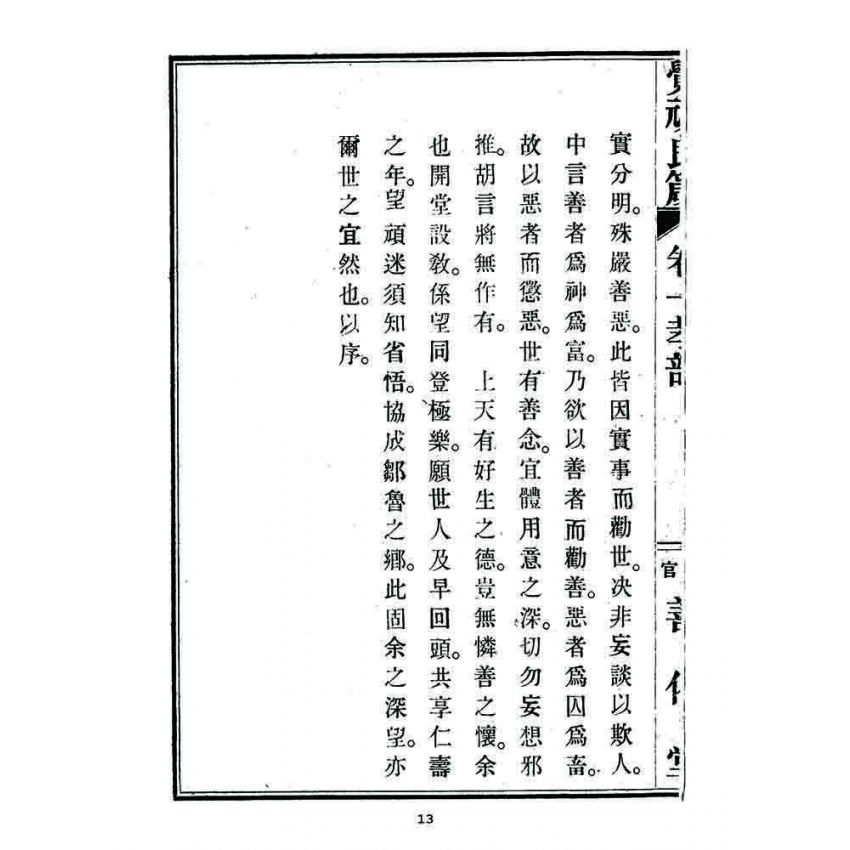 實分明。殊嚴善惡。此皆因實事而勸世。决非妄談以欺人。
中言善者爲神爲富。乃欲以善者而勸善。惡者爲囚爲畜。
故以惡者而懲惡。世有善念。宜體用意之深。切勿妄想邪
推。胡言將無作有。　上天有好生之德。豈無憐善之懷。余
也開堂設教。係望同登極樂。願世人及早回頭。共享仁壽
之年。望　頑迷須知省悟。協成鄒魯之鄉。此固余之深望。亦
爾世之宜然也。以序。
覺頑民篇
卷一
官
善化堂
13